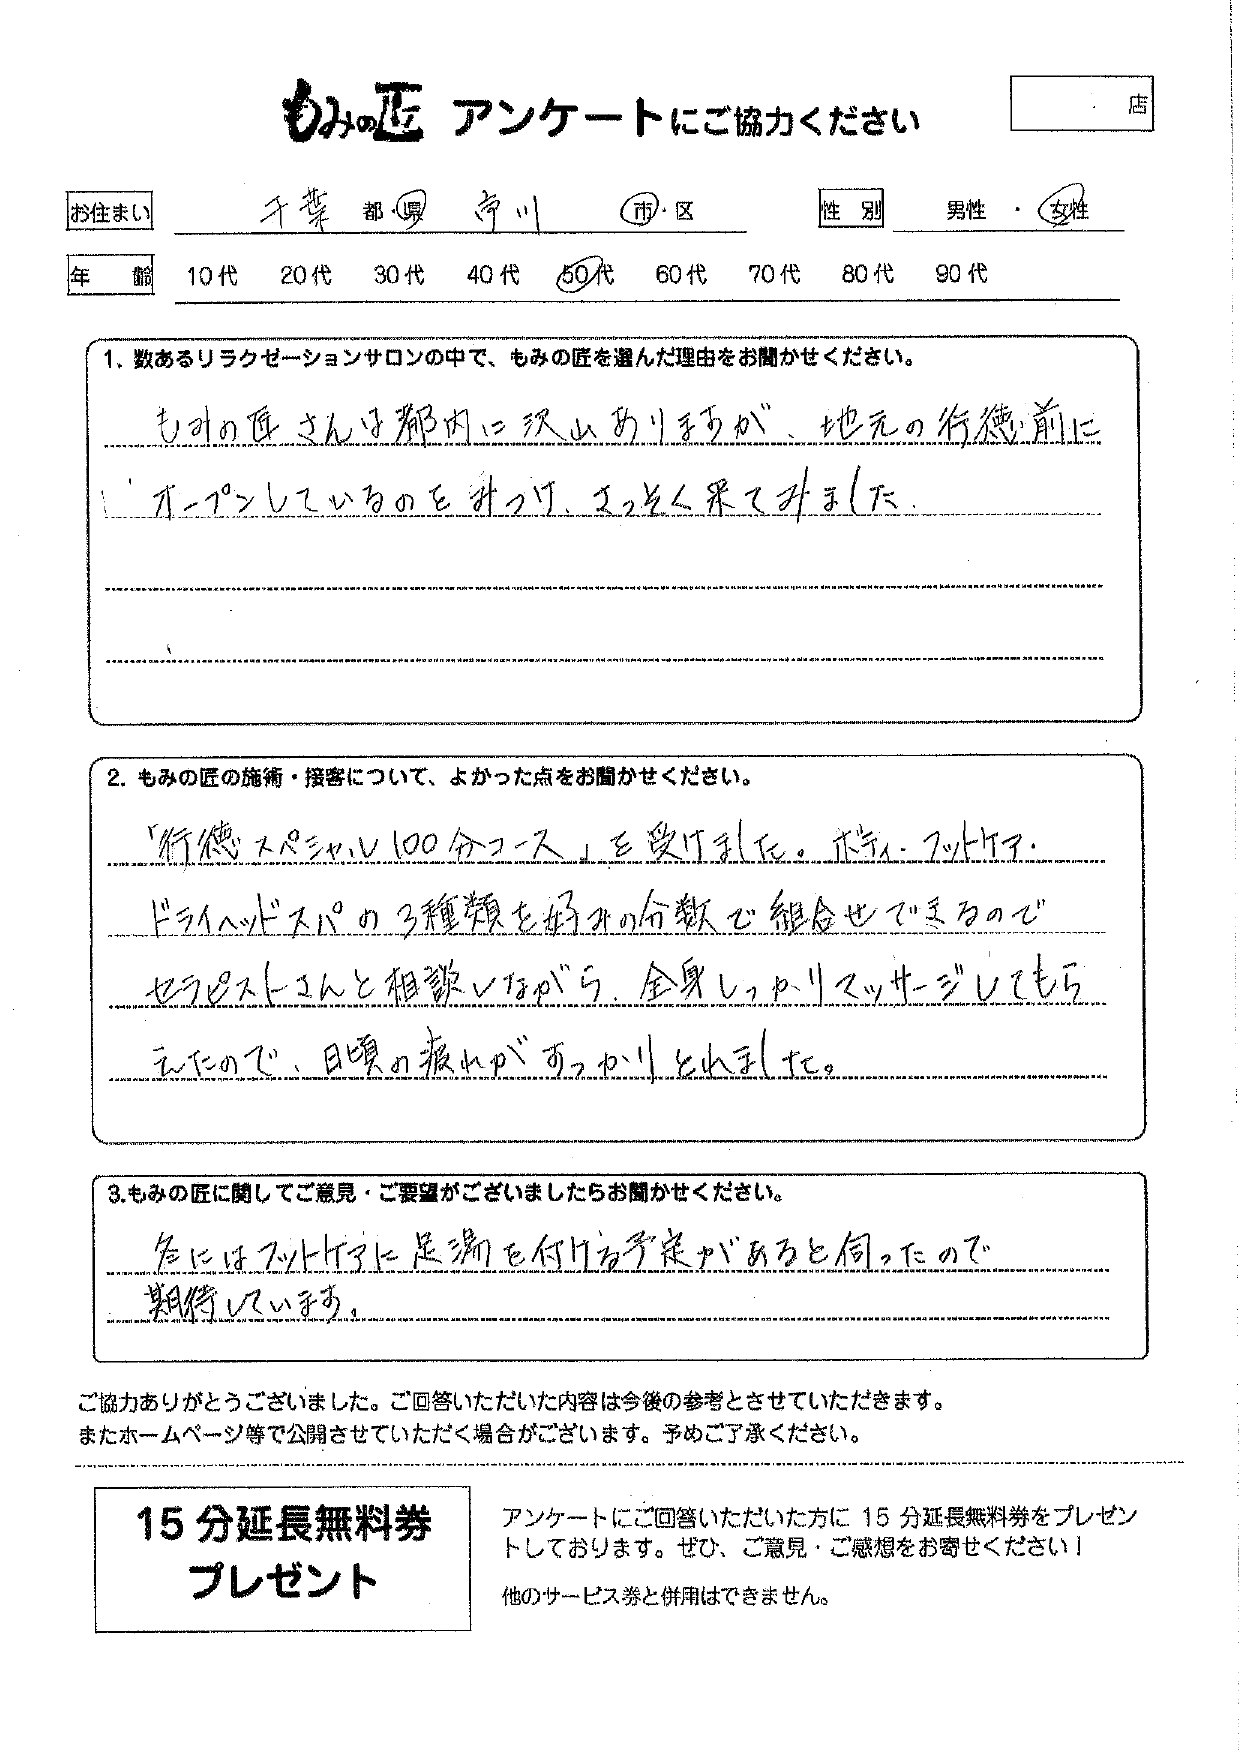 もみの匠 アンケートにご協力ください
店
お住まい 千葉 都・県 市川 市・区 性別 男性 ・ 女性
年齢 10代 20代 30代 40代 50代 60代 70代 80代 90代
1. 数あるリラクゼーションサロンの中で、もみの匠を選んだ理由をお聞かせください。
もみの匠さんは都内に沢山ありますが、地元の行徳前に
オープンしているのをみつけ、さっそく来てみました.
2. もみの匠の施術・接客について、よかった点をお聞かせください。
「行徳スペシャル100分コース」を受けました。ボディ・フットケア・
ドライヘッドスパの3種類を好みの分数で組合せできるので
セラピストさんと相談しながら、全身しっかりマッサージしてもら
えたので、日頃の疲れがすっかりとれました。
3.もみの匠に関してご意見・ご要望がございましたらお聞かせください。
冬にはフットケアに足湯を付ける予定があると伺ったので
期待しています。
ご協力ありがとうございました。ご回答いただいた内容は今後の参考とさせていただきます。
またホームページ等で公開させていただく場合がございます。予めご了承ください。
15分延長無料券
プレゼント
アンケートにご回答いただいた方に 15 分延長無料券をプレゼン
トしております。ぜひ、ご意見・ご感想をお寄せください！
他のサービス券と併用はできません。